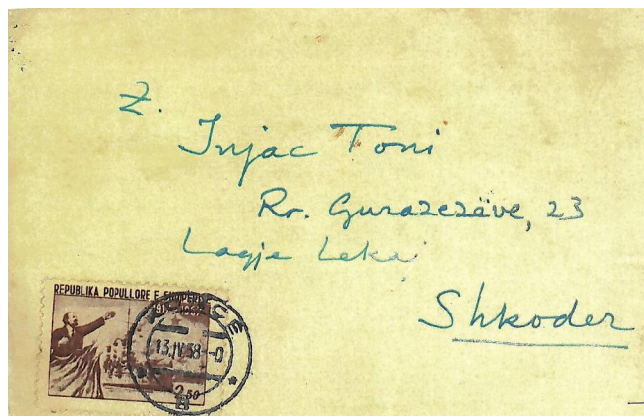 Z.
Injac Toni
Rr. Gurazezëve, 23
Lagje Lekaj
Shkoder
REPUBLIKA POPULLORE E SHQIPERISE
13.IV.58.-0
2.50